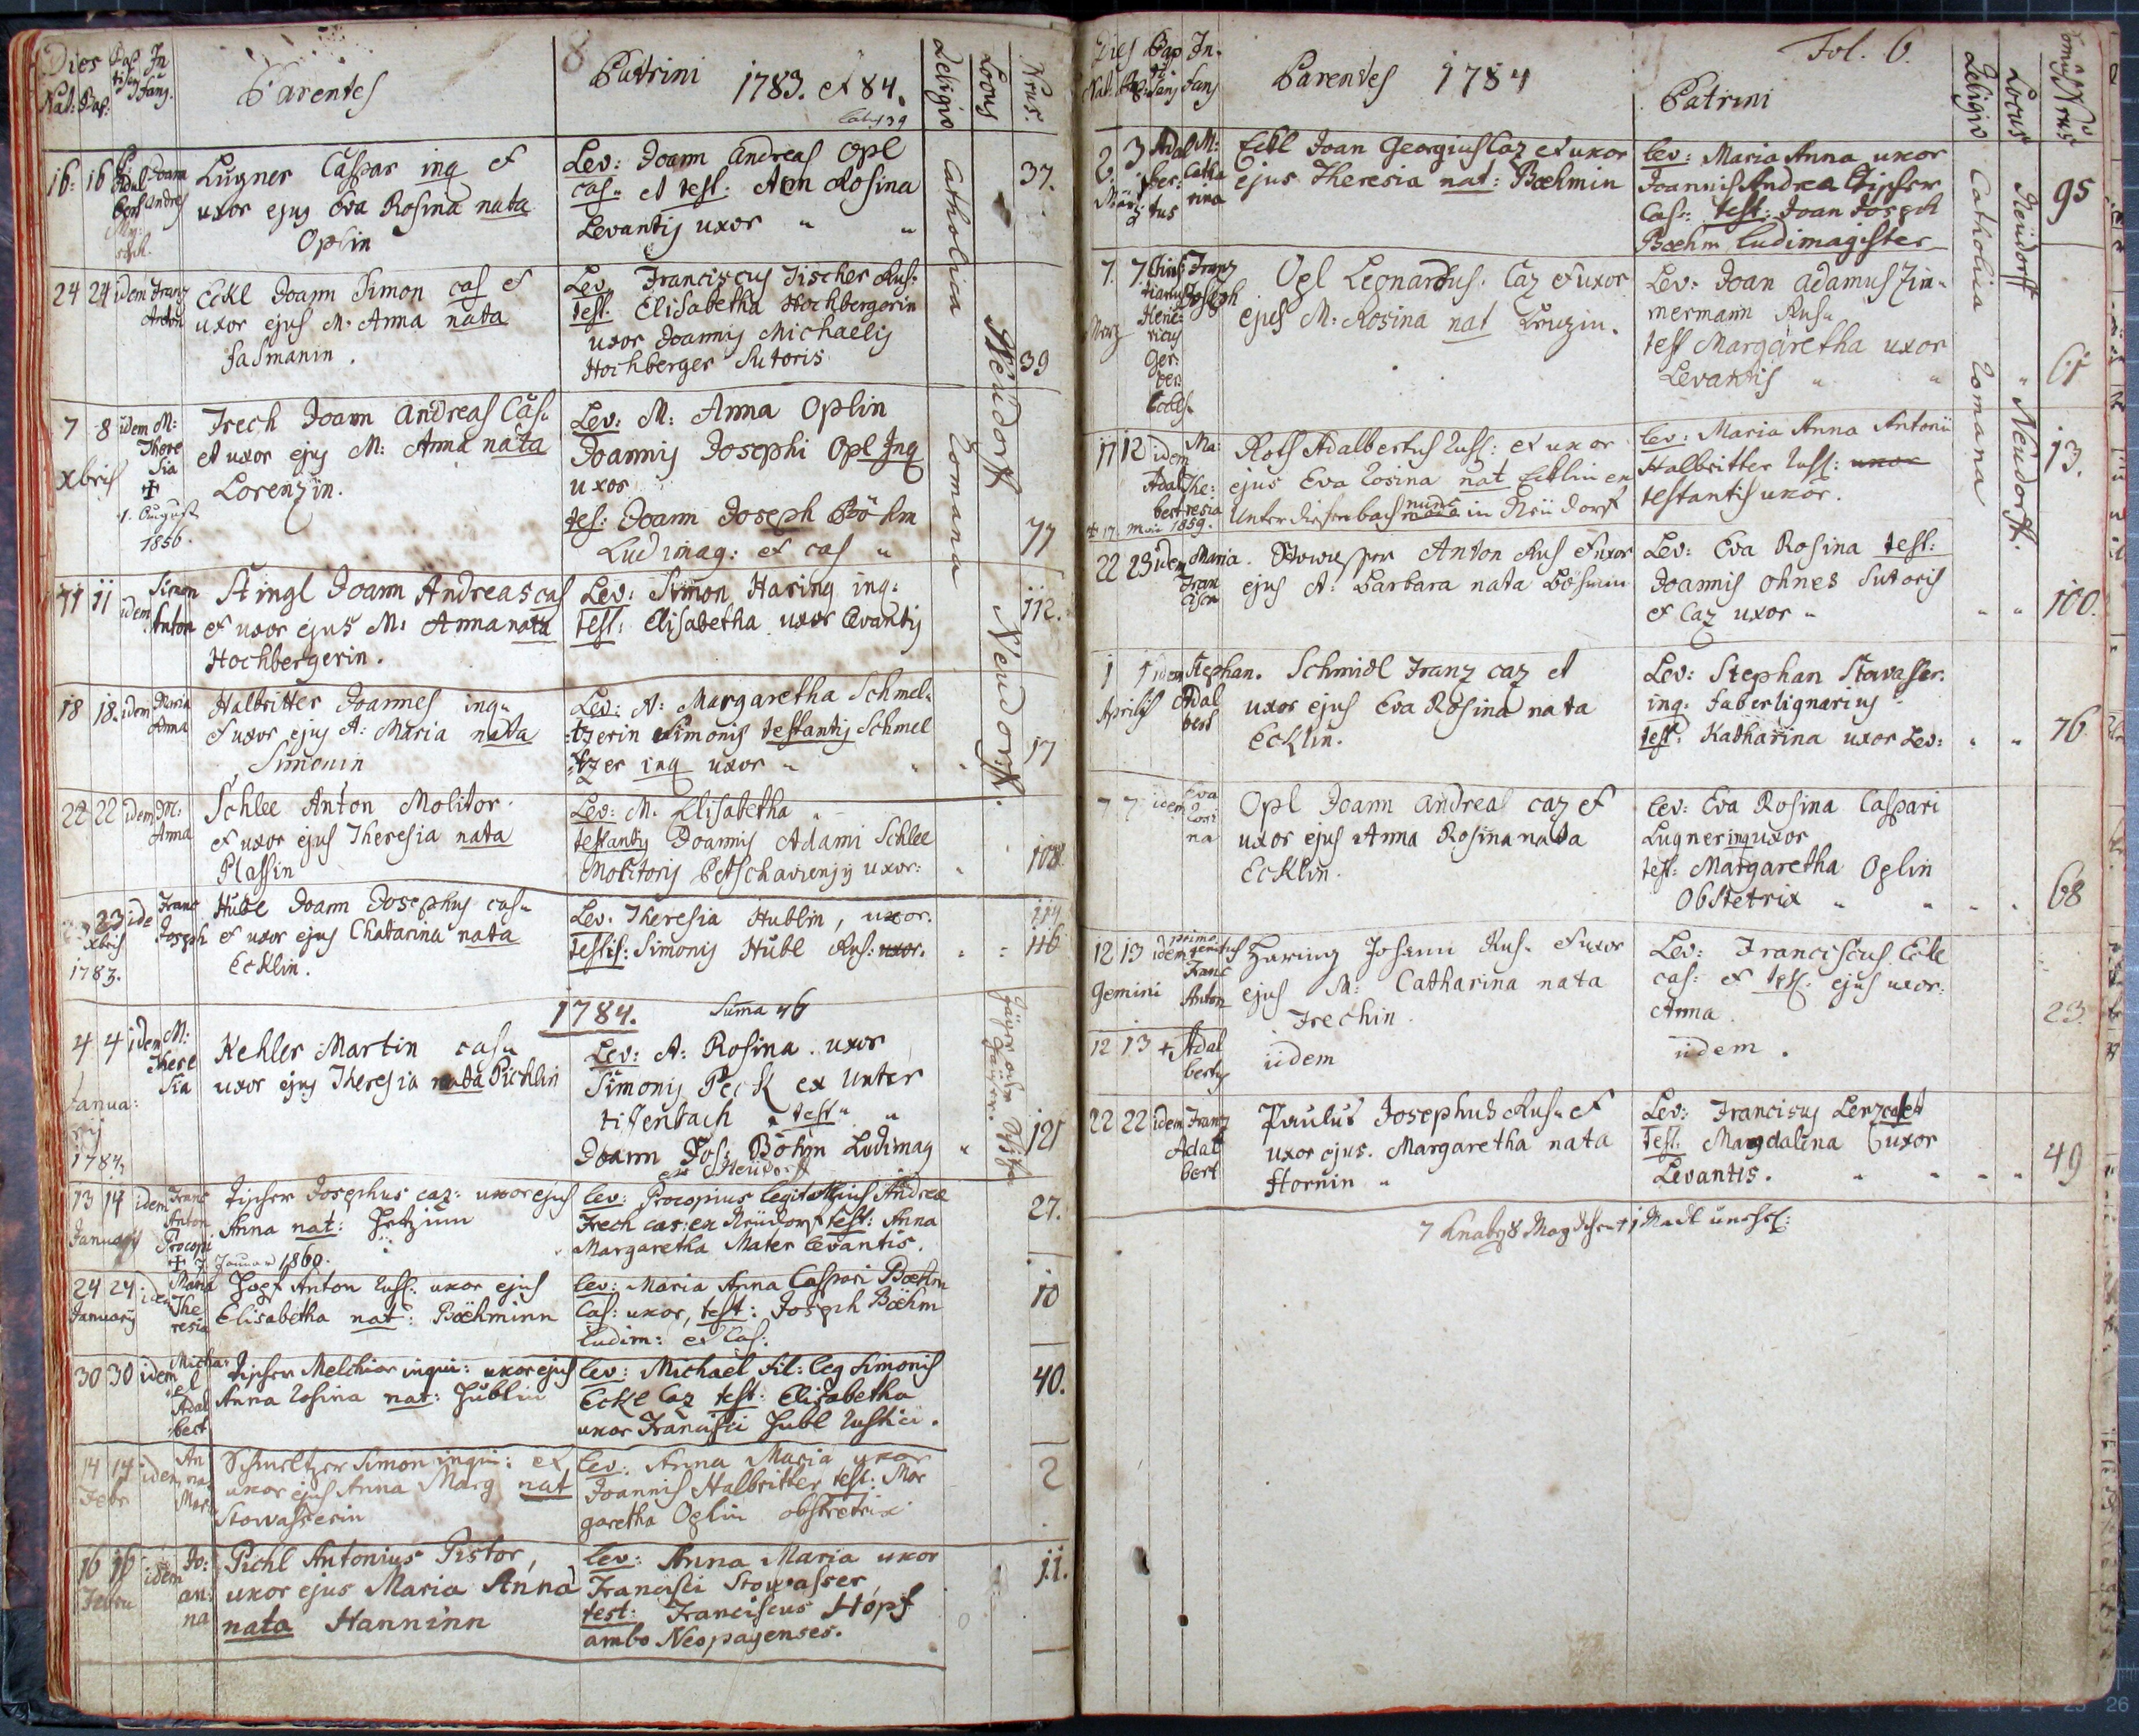 Dies Bap In
Nat: Bap: tisens fans.
Parentes
8
Patrini 1783. et 84.
Religio
Locus
Nrus.
16. 16 Adal bert
Joann Andres
Lugner Caspar inq et
uxor ejus Eva Rosina nata
Oplin
Lev: Joann Andreas Opl
cas: et test: Ann Rosina
Levantis uxor " "
37.
Catholica Romana
Neudorff Neudorff.
24 24 idem Franz Anton
Eckl Joann Simon cas et
uxor ejus M: Anna nata
Fasmanin.
Lev Franciscus Tischer Rus:
test. Elisabetha Hochbergerin
uxor Joannis Michaelis
Hochberger Sutoris
39
7 8 idem M: There sia
Xbris
1. August
1856.
Frech Joann Andreas Cas:
et uxor ejus M: Anna nata
Lorenzin.
Lev: M: Anna Oplin
Joannis Josephi Opl Inq
uxor
tes: Joann Joseph Böhm
Ludimag: et cas "
77
11 11 idem Simon Anton
Stingl Joann Andreas cas
et uxor ejus M: Anna nata
Hochbergerin.
Lev: Simon Haring inq:
test: Elisabetha uxor Levantis
112.
18 18. idem Maria Anna
Halbritter Joannes inq:
et uxor ejus A: Maria nata
Simonin
Lev: A: Margaretha Schmel:
:tzerin Simonis testantis Schmel
:tzer inq uxor "
17
22 22 idem M: Anna
Schlee Anton Molitor.
et uxor ejus Theresia nata
Plassin
Lev: M. Elisabetha
testantis Joannis Adami Schlee
Molitoris Petschaviensis uxor:
108
23 ide Franc Joseph
Xbris
1783.
Hubl Joann Josephus cas:
et uxor ejus Chatarina nata
Ecklin.
Lev. Theresia Hublin, uxor.
testis: Simonis Hubl Rus: uxor.
114
116
1784. Suma 46
4 4 idem M: There sia
Janua:
1784.
Kehler Martin cas:
uxor ejus Theresia nata Pichlin
Lev: A: Rosina uxor
Simonis Peck ex Unter
tifenbach test "
Joann Jos: Böhm Ludimag
ex Neudorff
121
13 14 idem Franc Anton Procopi
January
+ 7 Januar 1860.
Tipser Josephus caz: uxor ejus
Anna nat: Hetzinn
Lev: Procopius legit filius Andreæ
Frech cas: ex Neudorf test: Anna
Margaretha Mater Levantis.
27.
24 24 idem Maria The resia
January
Hopf Anton Russ: uxor ejus
Elisabetha nat: Bœhminn
Lev: Maria Anna Caspari Bœhm
Cas: uxor, test: Joseph Bœhm
ludim: et Cas:
10
30 30 idem Micha: el Adal bert
Tipser Melchior inqui: uxor ejus
Anna Rosina nat: Hublin
Lev: Michael fil: leg Simonis
Eckl Caz test: Elisabetha
uxor Francisci Hubl Rustici.
40.
14 14 idem An na Mar:
Febr
Schmeltzer Simon inqui: et
uxor ejus Anna Marg nat
Stowasserin
Lev: Anna Maria uxor
Joannis Halbritter, test: Mar
garetha Oplin obstetrix
2
16 16 idem Jo: an: na
Febru
Pichl Antonius Pistor,
uxor ejus Maria Anna
nata Hanninn
Lev: Anna Maria uxor
Francisci Stowasser,
test: Franciscus Hopf
ambo Neopagenses.
11.
Dies Bap In
Parentes 1784
Fol. 6.
Patrini
Religio
Locus
Domus Nrus
2. 3 Adal ber: tus
M: Catha rina
Martz
Eckl Joan Georgius Caz et uxor
ejus Theresia nat: Bœhmin
Lev: Maria Anna uxor
Joannis Andrea Tipser
Cas: test: Joan Joseph
Bœhm ludimagister
95
Catholica Romana
Neudorff " Neudorff.
7. 7 Franz Joseph
Mertz
Opl Leonardus. Caz et uxor
ejus M: Rosina nat Lenzin.
Lev: Joan Adamus Zim:
mermann Rus:
test Margaretha uxor
Levantis " "
61
17 12 idem Ma:
Adal bert The: resia
+ 17. Mai 1859.
Roth Adalbertus Russ: et uxor
ejus Eva Rosina nat Ecklin ex
Unter Diefenbach nunc in Neudorf
Lev: Maria Anna Antonii
Halbritter Russ: uxor
testantis uxor.
13.
22 23 idem Maria. Fran
Stowasser Anton Rus et uxor
ejus A: Barbara nata Böhmin
Lev: Eva Rosina test:
Joannis Ohnes Sutoris
et Caz uxor "
100.
1 1 idem Stephan. Adal bert
Aprilis
Schmidl Franz caz et
uxor ejus Eva Rosina nata
Ecklin.
Lev: Stephan Stowasser.
inq: faber lignarius
test: Katharina uxor Lev:
76.
7 7 idem Eva Rosi na
Opl Joann Andreas caz et
uxor ejus Anna Rosina nata
Ecklin.
Lev: Eva Rosina Caspari
Lugner inq uxor
test: Margaretha Oplin
Obstetrix "
68
12 13 idem primo genitus Franc Anton
Gemini
Haring Johann Rus. et uxor
ejus M: Catharina nata
Frechin.
Lev: Franciscus Eckl
cas: et test: ejus uxor:
Anna.
23.
12 13 + Adal bertus
iidem
iidem.
22 22 idem Franz Adal bert
Paulus Josephus Rus: et
uxor ejus. Margaretha nata
Hornin "
Lev: Francisus Lenz cas et
test. Magdalena uxor
Levantis.
49
7 Knaben 8 Magdchen + 1